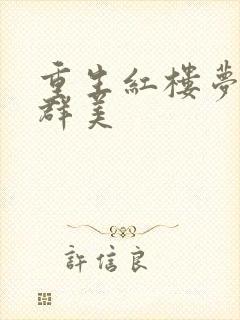 重生紅樓夢
群美
許信良